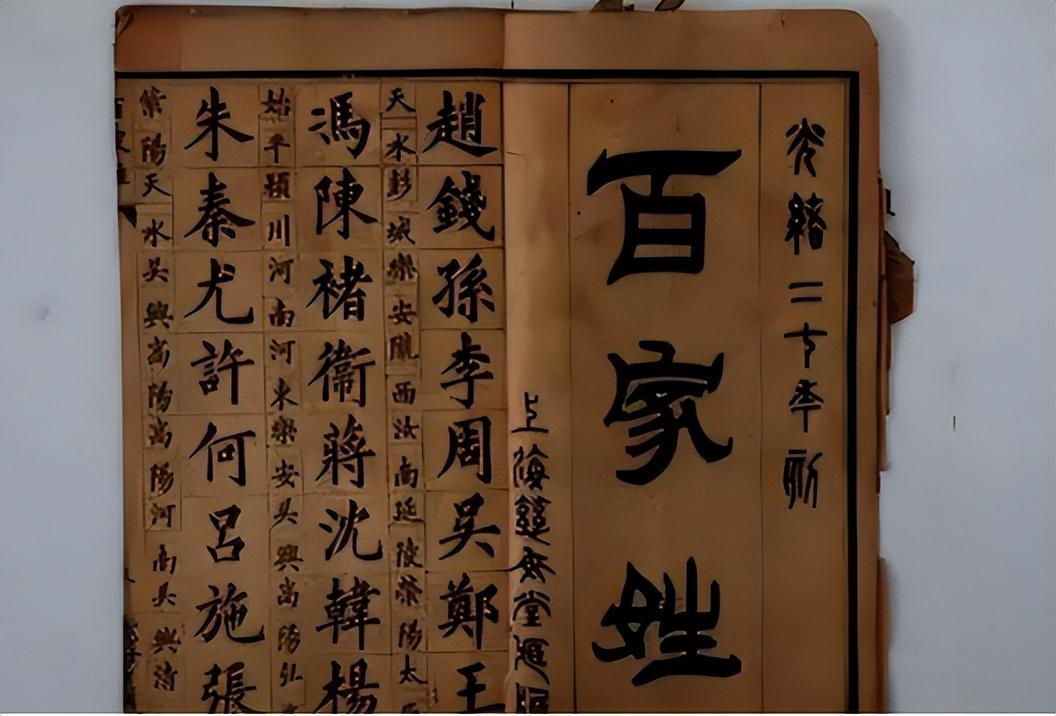 光緒二十年
百家姓
上海堂
趙錢孫李周吳鄭王
天水彭城樂安隴西汝南延陵滎陽太
馮陳褚衛蔣沈韓楊
始平潁川河南河東樂安吳興陽弘
朱秦尤許何呂施張
紫陽天水吳興高陽高陽河南吳興清